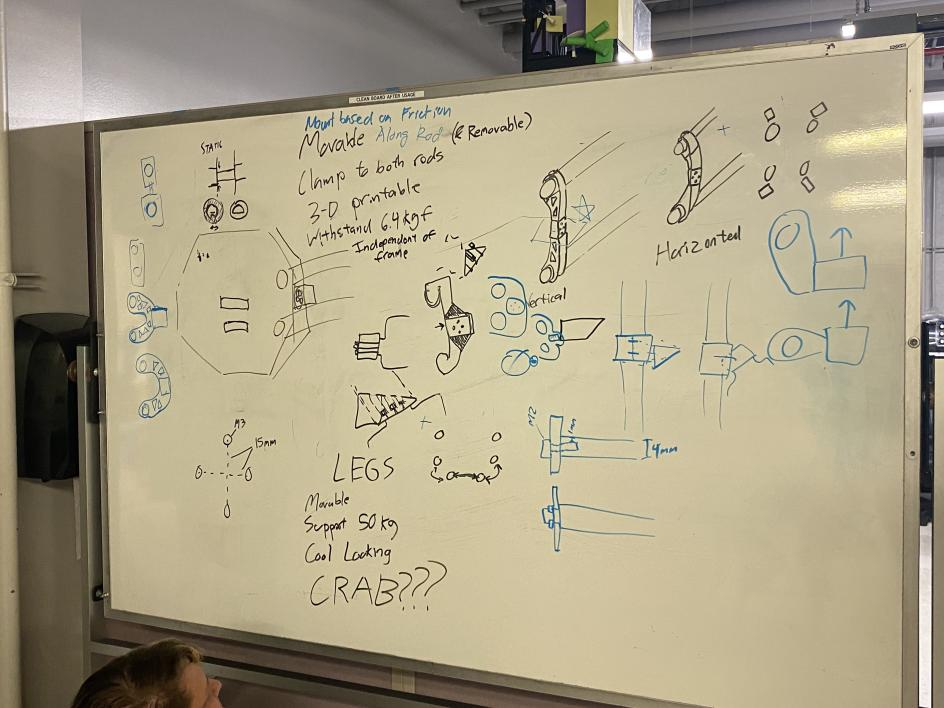 CLEAN BOARD AFTER USAGE
Mount based on Friction
Movable Along Rod (& Removable)
Clamp to both rods
3-D printable
Withstand 6.4 kgf
Independent of
frame
STATIC
Vertical
Horizontal
M3
15mm
M2
1mm
4mm
LEGS
Movable
Support 50 kg
Cool Looking
CRAB???